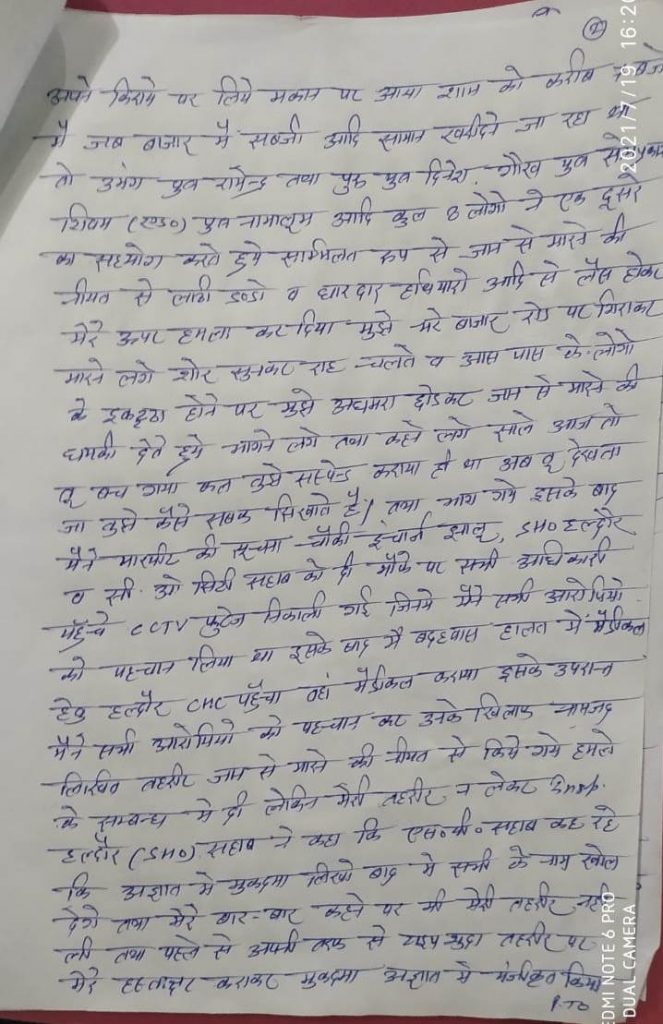 ②
अपने किराये पर लिये मकान पर आया शाम को करीब बजे
मै जब बाजार मे सब्जी आदि सामान खरीदने जा रहा था
तो उमंग पुत्र रामेन्द्र तथा पुत्र दिनेश, गौरव पुत्र
शिवम (रा०ड०) पुत्र नामालूम आदि कुल 8 लोगो ने एक दूसरे
का सहयोग करते हुये सम्मिलित रूप से जान से मारने की
नीयत से लाठी डण्डो व धारदार हथियारो आदि से लैस होकर
मेरे ऊपर हमला कर दिया मुझे भरे बाजार रोड पर गिराकर
मारने लगे शोर सुनकर राह चलते व आस पास के लोगो
के इकट्ठा होने पर मुझे अधमरा छोडकर जान से मारने की
धमकी देते हुये भागने लगे तथा कहने लगे साले आज तो
तू बच गया कल तुझे सस्पेन्ड कराया ही था अब तू देखता
जा तुझे कैसे सबक सिखाते है। तथा भाग गये इसके बाद
मैने मारपीट की सूचना चौकी इंचार्ज झालू, SHO हल्दौर
व सी. ओ सिटी सहाब को दी मौके पर सभी अधिकारी
पहुँचे CCTV फुटेज निकाली गई जिनमे मैने सभी आरोपियो
को पहचान लिया था इसके बाद मै बदहवास हालत मे मेडीकल
हेतु हल्दौर CHC पहुँचा वहां मेडीकल कराया इसके उपरान्त
मैने सभी आरोपियो को पहचान कर उनके खिलाफ नामजद
लिखित तहरीर जान से मारने की नीयत से किये गये हमले
के सम्बन्ध मे दी लेकिन मेरी तहरीर न लेकर
हल्दौर (SHO) सहाब ने कहा कि एस०पी० सहाब कह रहे
कि अज्ञात मे मुकदमा लिखो बाद मे सभी के नाम खोल
देगे तथा मेरे बार-बार कहने पर भी मेरी तहरीर नही
ली तथा पहले से अपनी तरफ से टाइप शुदा तहरीर पर
मेरे हस्ताक्षर कराकर मुकदमा अज्ञात मे पंजीकृत किया
P.TO
2021/7/19 16:20
REDMI NOTE 6 PRO
DUAL CAMERA